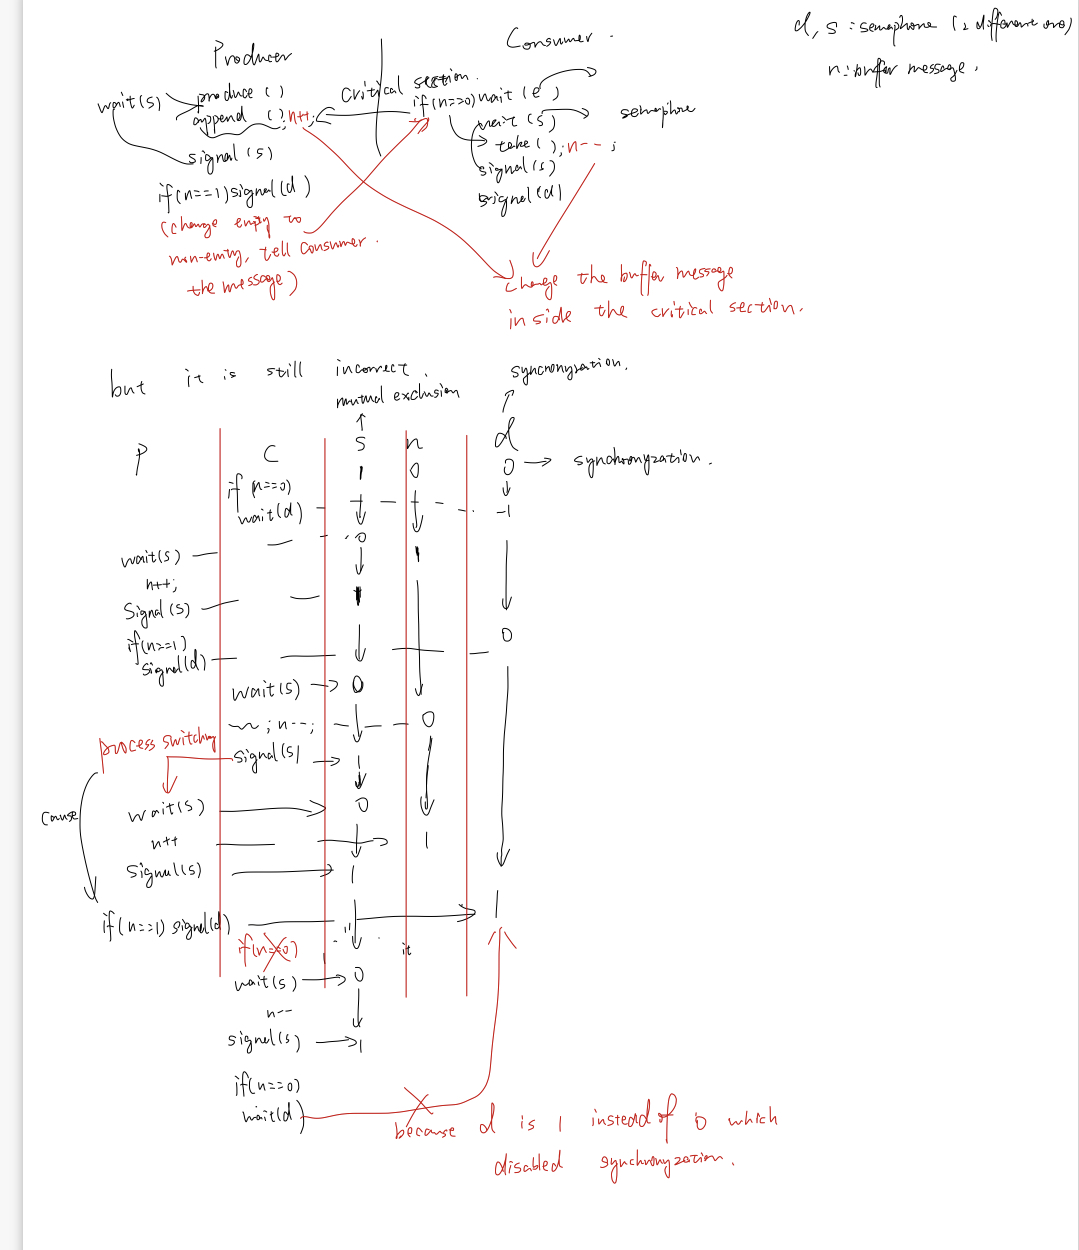 d, s : semaphone (2 different ones)
n : buffer message.
Producer
Consumer
wait(s)
produce ()
append (); n++;
signal (s)
if(n==1)signal(d)
(change empty to
non-emty, tell consumer
the message)
critical section.
if(n==0)wait(e)
wait(s)
take(); n-- ;
signal(s)
signal(d)
semaphore
change the buffer message
inside the critical section.
but it is still incorrect.
mutual exclusion
syncronyzation.
P
C
s
n
d
1
0
0
synchronyzation.
if (n==0)
wait(d)
-1
0
wait(s)
1
n++;
Signal(s)
1
if(n==1)
signal(d)
0
wait(s)
0
; n--;
0
process switching
signal(s)
1
cause
wait(s)
0
n++
1
signal(s)
1
if(n==1) signal(d)
1
if(n==0)
it
wait(s)
0
n--
signal(s)
1
if(n==0)
wait(d)
because d is 1 instead of 0 which
disabled synchronyzation.